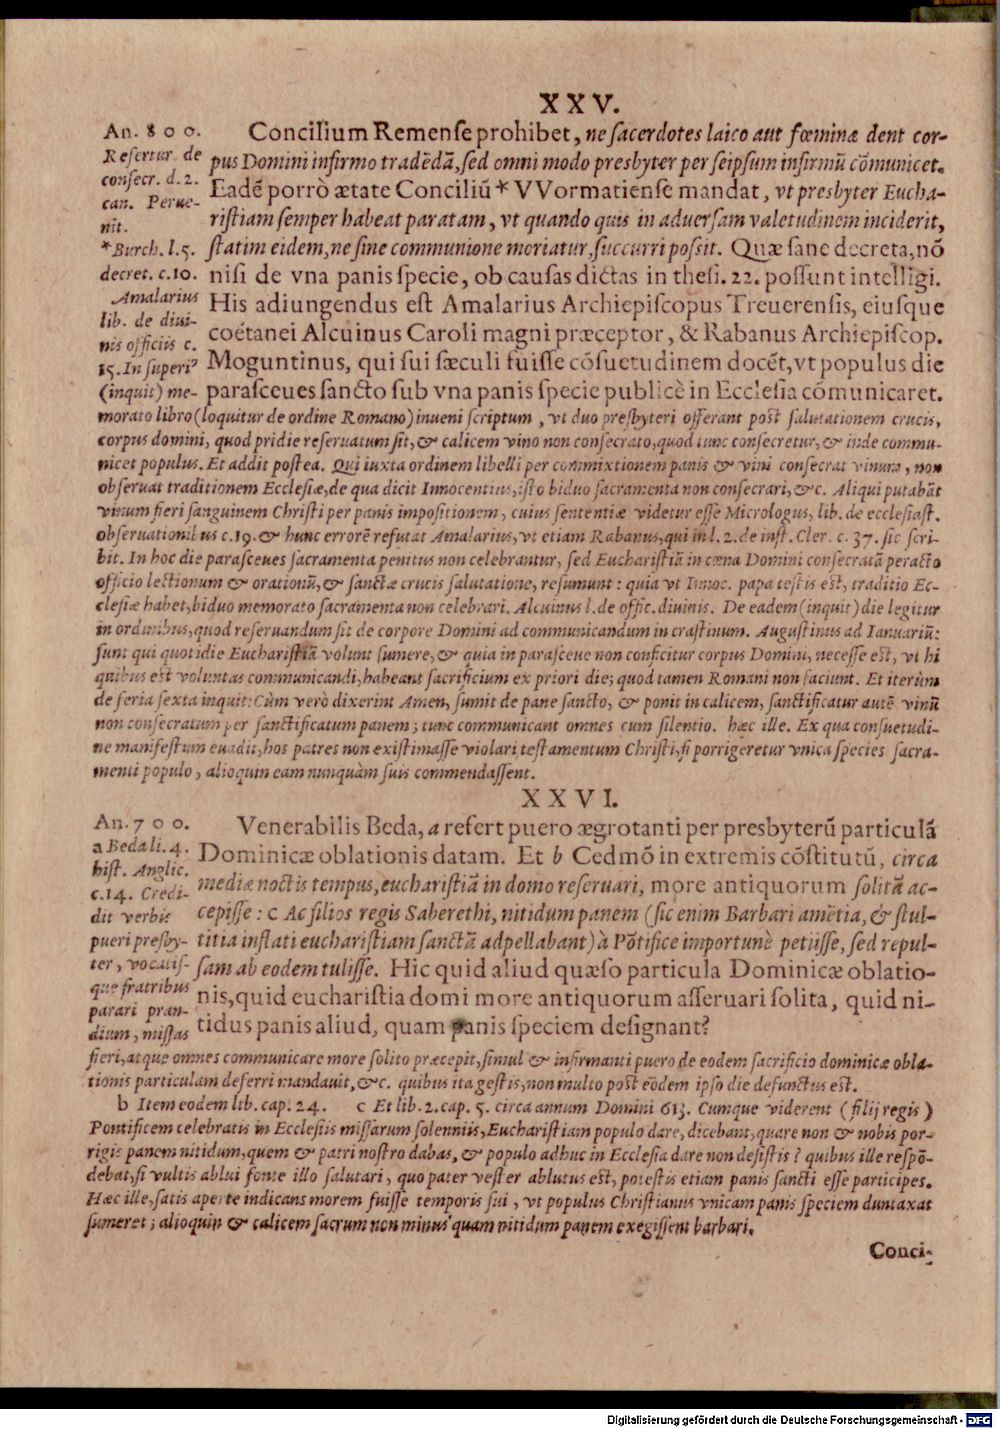 XXV.
An. 800.
Refertur de
consecr. d. 2.
can. Perue-
nit.
*Burch. l. 5.
decret. c. 10.
Amalarius
lib. de diui-
nis officiis c.
15. In superi⁹
(inquit) me-
Concilium Remense prohibet, ne sacerdotes laico aut fœminæ dent cor-
pus Domini infirmo tradēdā, sed omni modo presbyter per seipsum infirmū cōmunicet.
Eadē porrò ætate Conciliū * VVormatiense mandat, vt presbyter Eucha-
ristiam semper habeat paratam, vt quando quis in aduersam valetudinem inciderit,
statim eidem, ne sine communione moriatur, succurri possit. Quæ sanc decreta, nō
nisi de vna panis specie, ob causas dictas in thesi. 22. possunt intelligi.
His adiungendus est Amalarius Archiepiscopus Treuerensis, eiusque
coëtanei Alcuinus Caroli magni præceptor, & Rabanus Archiepiscop.
Moguntinus, qui sui sæculi fuisse cōsuetudinem docēt, vt populus die
parasceues sancto sub vna panis specie publicè in Ecclesia cōmunicaret.
morato libro (loquitur de ordine Romano) inueni scriptum, vt duo presbyteri offerant post salutationem crucis,
corpus domini, quod pridie reseruatum sit, & calicem vino non consecrato, quod tunc consecretur, & inde commu-
nicet populus. Et addit postea. Qui iuxta ordinem libelli per commixtionem panis & vini consecrat vinum, non
obseruat traditionem Ecclesiæ, de qua dicit Innocentius, isto biduo sacramenta non consecrari, &c. Aliqui putabāt
vinum fieri sanguinem Christi per panis impositionem, cuius sententiæ videtur esse Micrologus, lib. de ecclesiast.
obseruationibus c. 19. & hunc errorē refutat Amalarius, vt etiam Rabanus, qui in l. 2. de inst. Cler. c. 37. sic scri-
bit. In hoc die parasceues sacramenta penitus non celebrantur, sed Eucharistiā in cœna Domini consecratā peracto
officio lectionum & orationū, & sanctæ crucis salutatione, resumunt: quia vt Innoc. papa testis est, traditio Ec-
clesiæ habet, biduo memorato sacramenta non celebrari. Alcuinus l. de offic. diuinis. De eadem (inquit) die legitur
in ordinibus, quod reseruandum sit de corpore Domini ad communicandum in crastinum. Augustinus ad Ianuariū:
sunt qui quotidie Eucharistiā volunt sumere, & quia in parasceue non conficitur corpus Domini, necesse est, vt hi
quibus est voluntas communicandi, habeant sacrificium ex priori die; quod tamen Romani non faciunt. Et iterùm
de feria sexta inquit: Cùm verò dixerint Amen, sumit de pane sancto, & ponit in calicem, sanctificatur autē vinū
non consecratum per sanctificatum panem; tunc communicant omnes cum silentio. hæc ille. Ex qua consuetudi-
ne manifestum euadit, hos patres non existimasse violari testamentum Christi, si porrigeretur vnica species sacra-
menti populo, alioquin eam nunquàm suis commendassent.
XXVI.
An. 700.
a Beda li. 4.
hist. Anglic.
c. 14. Credi-
dit verbis
pueri presby-
ter, vocatis-
que fratribus
parari pran-
dium, missas
Venerabilis Beda, a refert puero ægrotanti per presbyterū particulā
Dominicæ oblationis datam. Et b Cedmō in extremis cōstitutū, circa
mediæ noctis tempus, eucharistiā in domo reseruari, more antiquorum solitā ac-
cepisse: c Ac filios regis Saberethi, nitidum panem (sic enim Barbari amētia, & stul-
titia inflati eucharistiam sanctā adpellabant) à Pōtifice importunè petiisse, sed repul-
sam ab eodem tulisse. Hic quid aliud quæso particula Dominicæ oblatio-
nis, quid eucharistia domi more antiquorum asseruari solita, quid ni-
tidus panis aliud, quam panis speciem designant?
fieri, atque omnes communicare more solito præcepit, simul & infirmanti puero de eodem sacrificio dominicæ obla-
tionis particulam deferri mandauit, &c. quibus ita gestis, non multo post eōdem ipso die defunctus est.
b Item eodem lib. cap. 24. c Et lib. 2. cap. 5. circa annum Domini 613. Cumque viderent (filij regis)
Pontificem celebratis in Ecclesiis missarum solenniis, Eucharistiam populo dare, dicebant, quare non & nobis por-
rigis panem nitidum, quem & patri nostro dabas, & populo adhuc in Ecclesia dare non desistis? quibus ille respō-
debat, si vultis ablui fonte illo salutari, quo pater vester ablutus est, potestis etiam panis sancti esse participes.
Hæc ille, satis aperte indicans morem fuisse temporis sui, vt populus Christianus vnicam panis speciem duntaxat
sumeret; alioquin & calicem sacrum non minus quam nitidum panem exegissent barbari.
Conci-
Digitalisierung gefördert durch die Deutsche Forschungsgemeinschaft - DFG